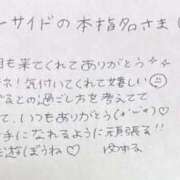 ーサイドの本指名さま
目も来てくれてありがとう
ネ！気付いてくれて嬉しい
との過ごし方を考えてて
て、いつもありがとう
手になれるように頑張る!!
遊ぼうね♡ ゆする